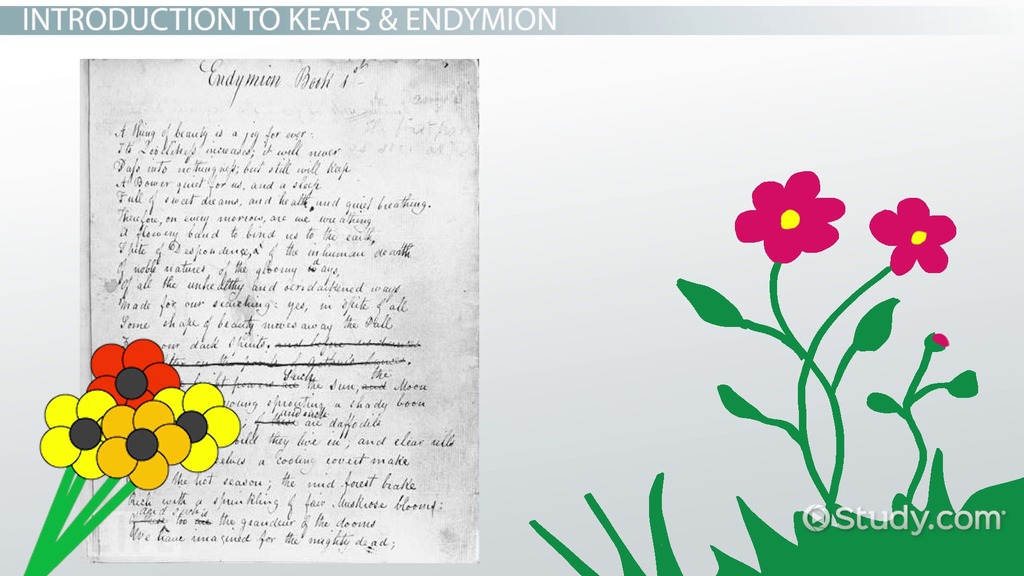 INTRODUCTION TO KEATS & ENDYMION
Endymion Book 1st
A thing of beauty is a joy for ever:
Its Loveliness increases; it will never
Pass into nothingness; but still will keep
A Bower quiet for us, and a sleep
Full of sweet dreams, and health, and quiet breathing.
Therefore, on every morrow, are we wreathing
A flowery band to bind us to the earth,
Spite of Despondence, of the inhuman dearth
Of noble natures, of the gloomy days,
Of all the unhealthy and o'erdarkened ways
Made for our searching: yes, in spite of all
Some shape of beauty moves away the Pall
our dark Spirits.
Such the
the Sun, and Moon
young sprouting a shady boon
and such
are daffodils
they live in; and clear rills
a cooling covert make
the hot season; the mid forest brake
Rich with a sprinkling of fair Muskrose blooms:
and such is
too the grandeur of the dooms
We have imagined for the mighty dead;
Study.com